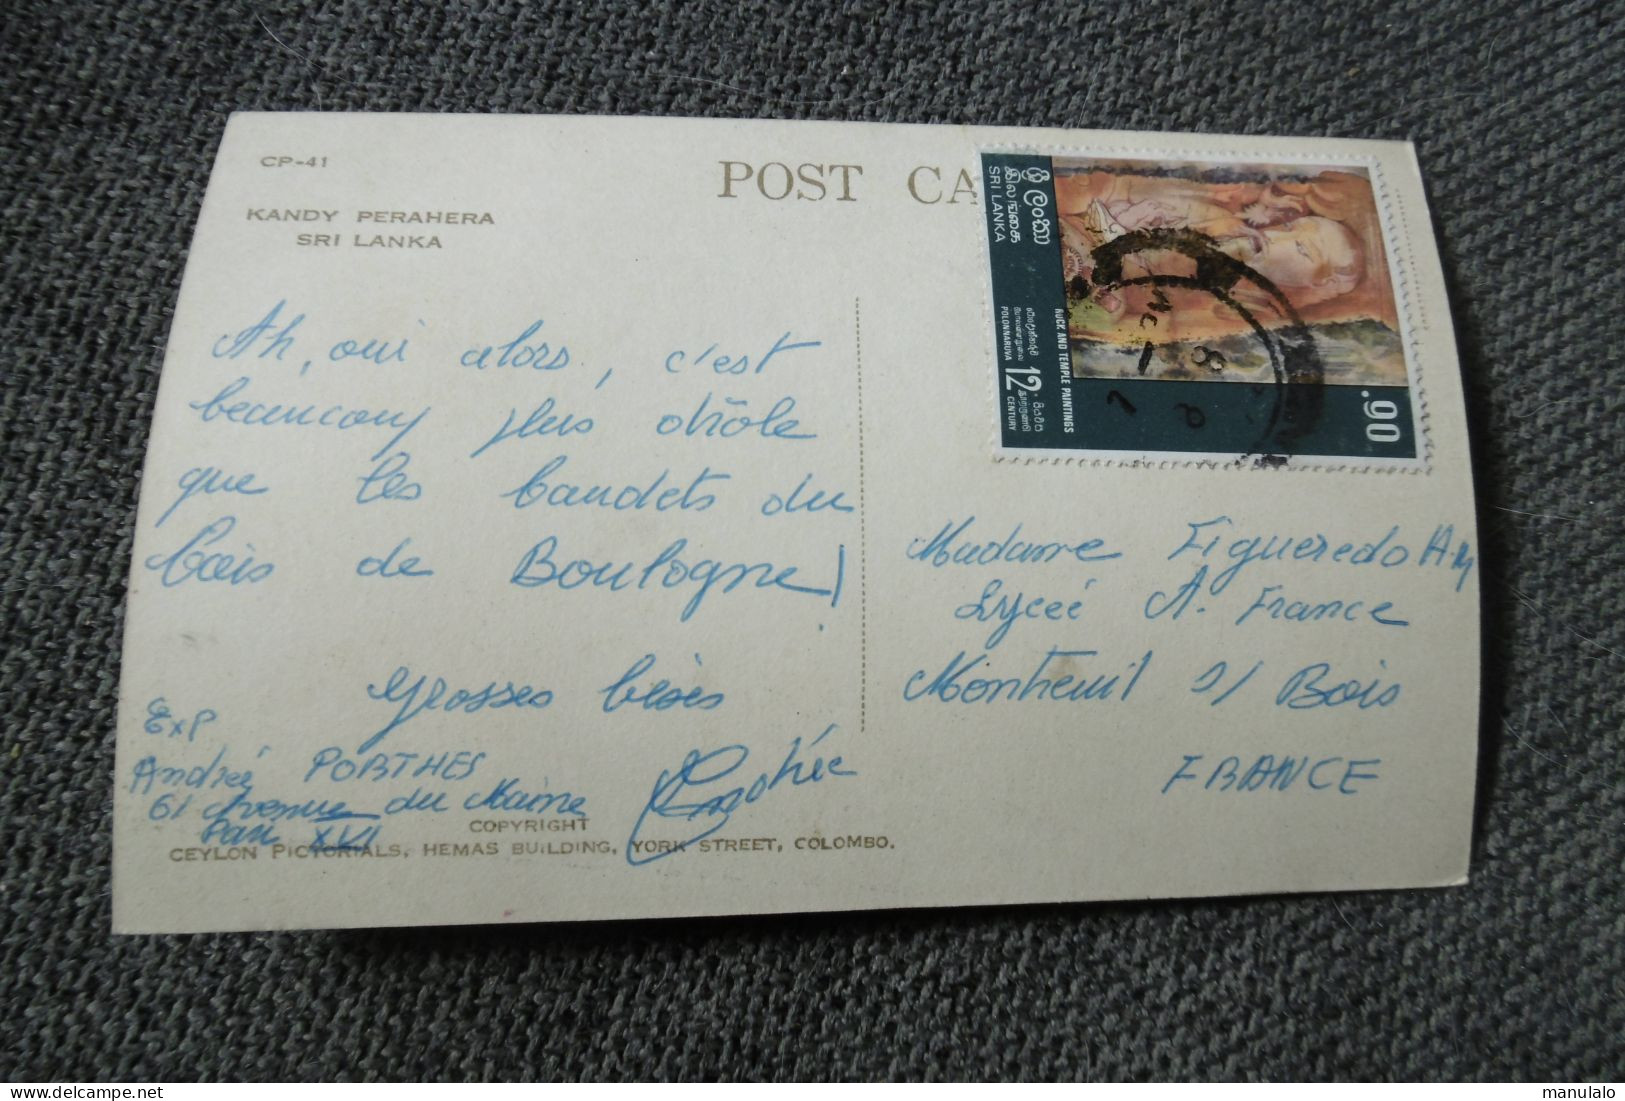 CP-41
POST CA
KANDY PERAHERA
SRI LANKA
ශ්‍රී ලංකා
இலங்கை
SRI LANKA
ROCK AND TEMPLE PAINTINGS
POLONNARUVA 12 CENTURY
.90
Ah, oui alors, c'est
beaucoup plus drôle
que les baudets du
bois de Boulogne!
Grosses bises
Exp
Andrée PORTHES
61 Avenue du Maine
Paris XVI
Madame Figueredo A.M
Lycée A. France
Montreuil s/ Bois
FRANCE
COPYRIGHT
CEYLON PICTORIALS, HEMAS BUILDING, YORK STREET, COLOMBO.
manulalo